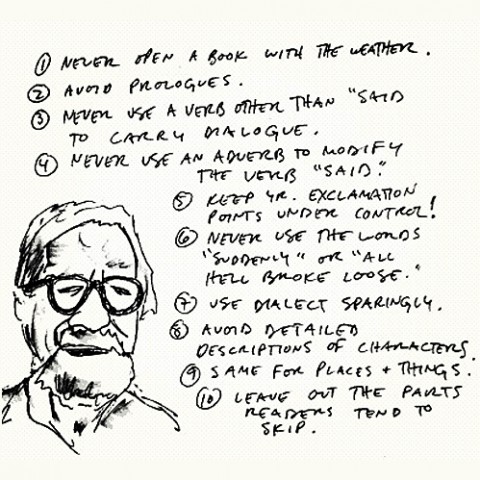 ① NEVER OPEN A BOOK WITH THE WEATHER.
② AVOID PROLOGUES.
③ NEVER USE A VERB OTHER THAN "SAID
TO CARRY DIALOGUE.
④ NEVER USE AN ADVERB TO MODIFY
THE VERB "SAID."
⑤ KEEP YR. EXCLAMATION
POINTS UNDER CONTROL!
⑥ NEVER USE THE WORDS
"SUDDENLY" OR "ALL
HELL BROKE LOOSE."
⑦ USE DIALECT SPARINGLY.
⑧ AVOID DETAILED
DESCRIPTIONS OF CHARACTERS.
⑨ SAME FOR PLACES + THINGS.
⑩ LEAVE OUT THE PARTS
READERS TEND TO
SKIP.